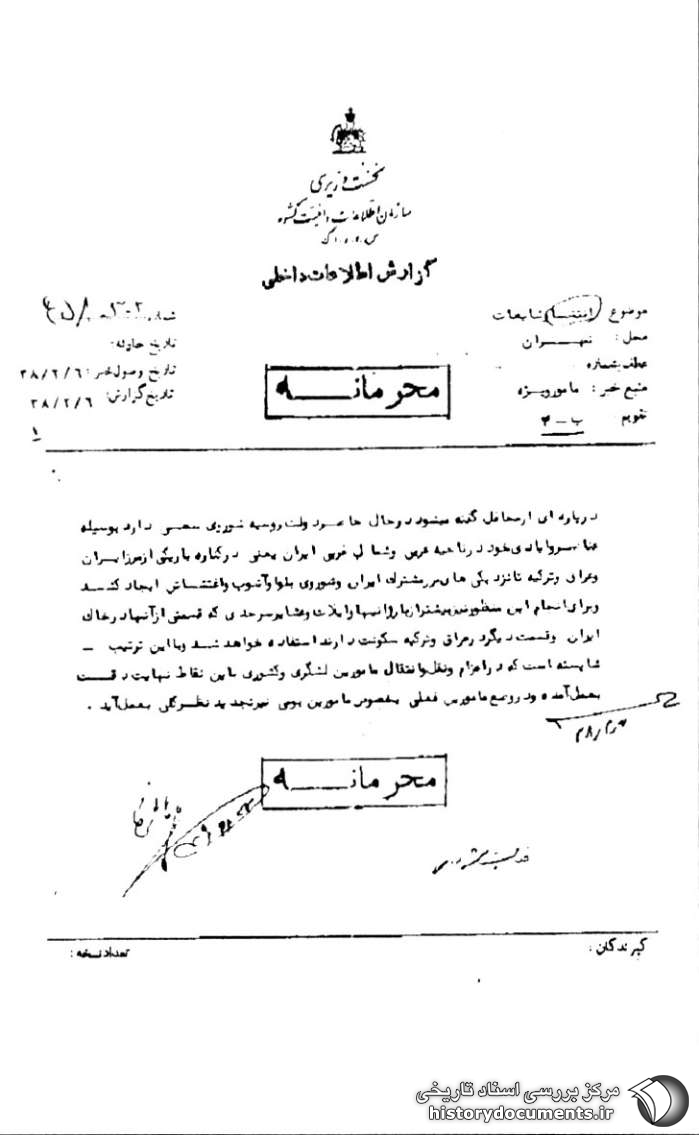 نخست وزیری
سازمان اطلاعات و امنیت کشور
س.ا.و.ا.ک
گزارش اطلاعات داخلی
موضوع : شایعات
محل : تهران
عطف بشماره
منبع خبر : مامور ویژه
تقویم ب - ۳
شماره
تاریخ حادثه :
تاریخ وصول خبر : ۳۸/۲/۶
تاریخ گزارش : ۳۸/۲/۶
۱
محرمانه
در پاره ای از محافل گفته میشود در حال حاضر دولت روسیه شوروی سعی دارد بوسیله
عناصر و ایادی خود در ناحیه غربی و شمال غربی ایران یعنی در کناره باریکی از مرز ایران
و عراق و ترکیه تا نزدیکی های مرز مشترک ایران و شوروی بلوا و آشوب و اغتشاش ایجاد کند
و برای انجام این منظور نیز بیشتر از بارزانیها و ایلات و عشایر سرحدی که قسمتی از آنها در خاک
ایران و قسمت دیگر در عراق و ترکیه سکونت دارند استفاده خواهد شد و با این ترتیب -
شایسته است که در اعزام و نقل و انتقال مامورین لشگری و کشوری باین نقاط نهایت دقت
بعمل آمده و در وضع مامورین فعلی بخصوص مامورین بومی نیز تجدید نظر کلی بعمل آید .
محرمانه
گیرندگان :
تعداد نسخه :
مرکز بررسی اسناد تاریخی
historydocuments.ir